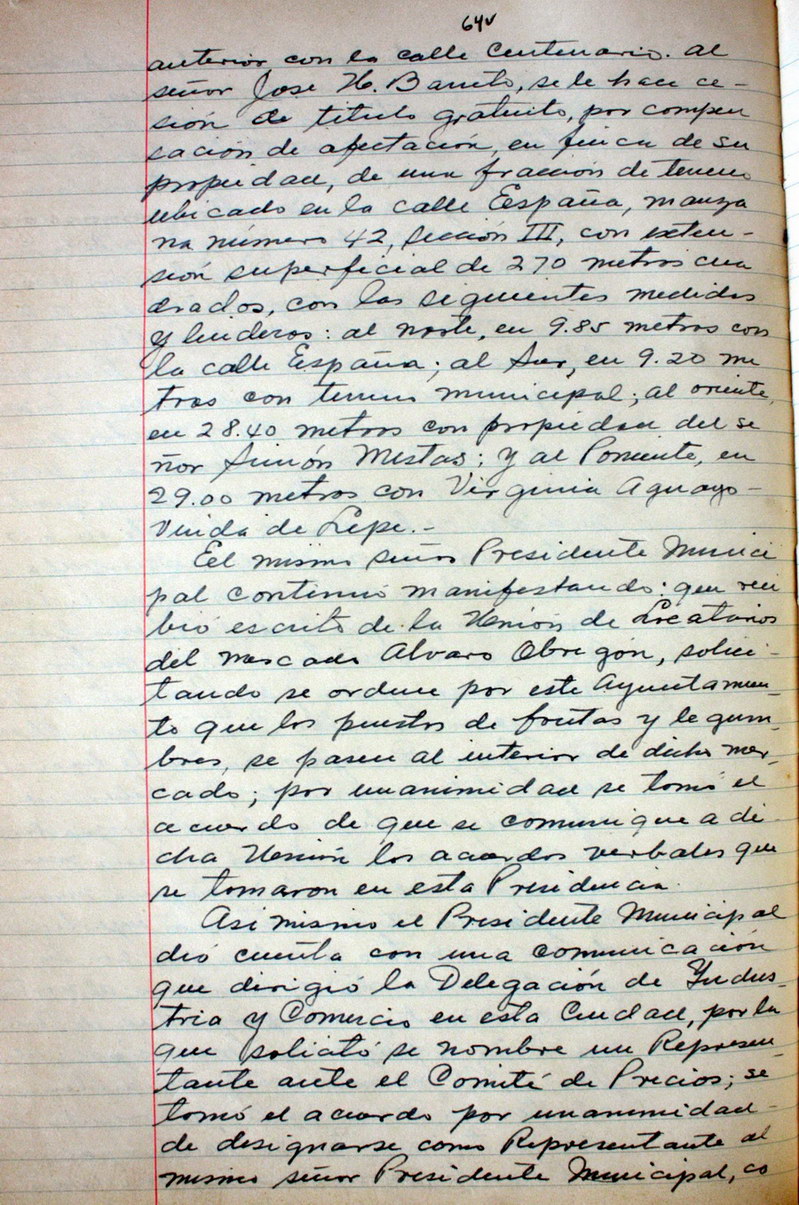 64v
anterior con la calle Centenario. al
señor Jose H. Barreto, se le hace ce-
sión de titulo gratuito, por compen
sación de afectación, en finca de su
propiedad, de una fracción de terreno
ubicado en la calle España, manza
na número 42, sección III, con exten-
sión superficial de 270 metros cua
drados, con las siguientes medidas
y linderos: al norte, en 9.85 metros con
la calle España; al Sur, en 9.20 me
tros con terreno municipal; al oriente,
en 28.40 metros con propiedad del se
ñor Simón Mestas; y al Poniente, en
29.00 metros con Virginia Aguayo-
Viuda de Lepe.-
Eel mismo señor Presidente Munici
pal continuó manifestando: que reci
bió escrito de la Unión de Locatarios
del mercado Alvaro Obregón, solici-
tando se ordene por este Ayuntamien-
to que los puestos de frutas y legum-
bres, se pasen al interior de dicho mer-
cado; por unanimidad se tomó el
acuerdo de que se comunique a di-
cha Unión los acuerdos verbales que
se tomaron en esta Presidencia.
Asi mismo el Presidente Municipal
dió cuenta con una comunicación
que dirigió la Delegación de Indus-
tria y Comercio en esta Ciudad, por la
que solicitó se nombre un Represen-
tante ante el Comité de Precios; se
tomó el acuerdo por unanimidad-
de designarse como Representante al
mismo señor Presidente Municipal, co